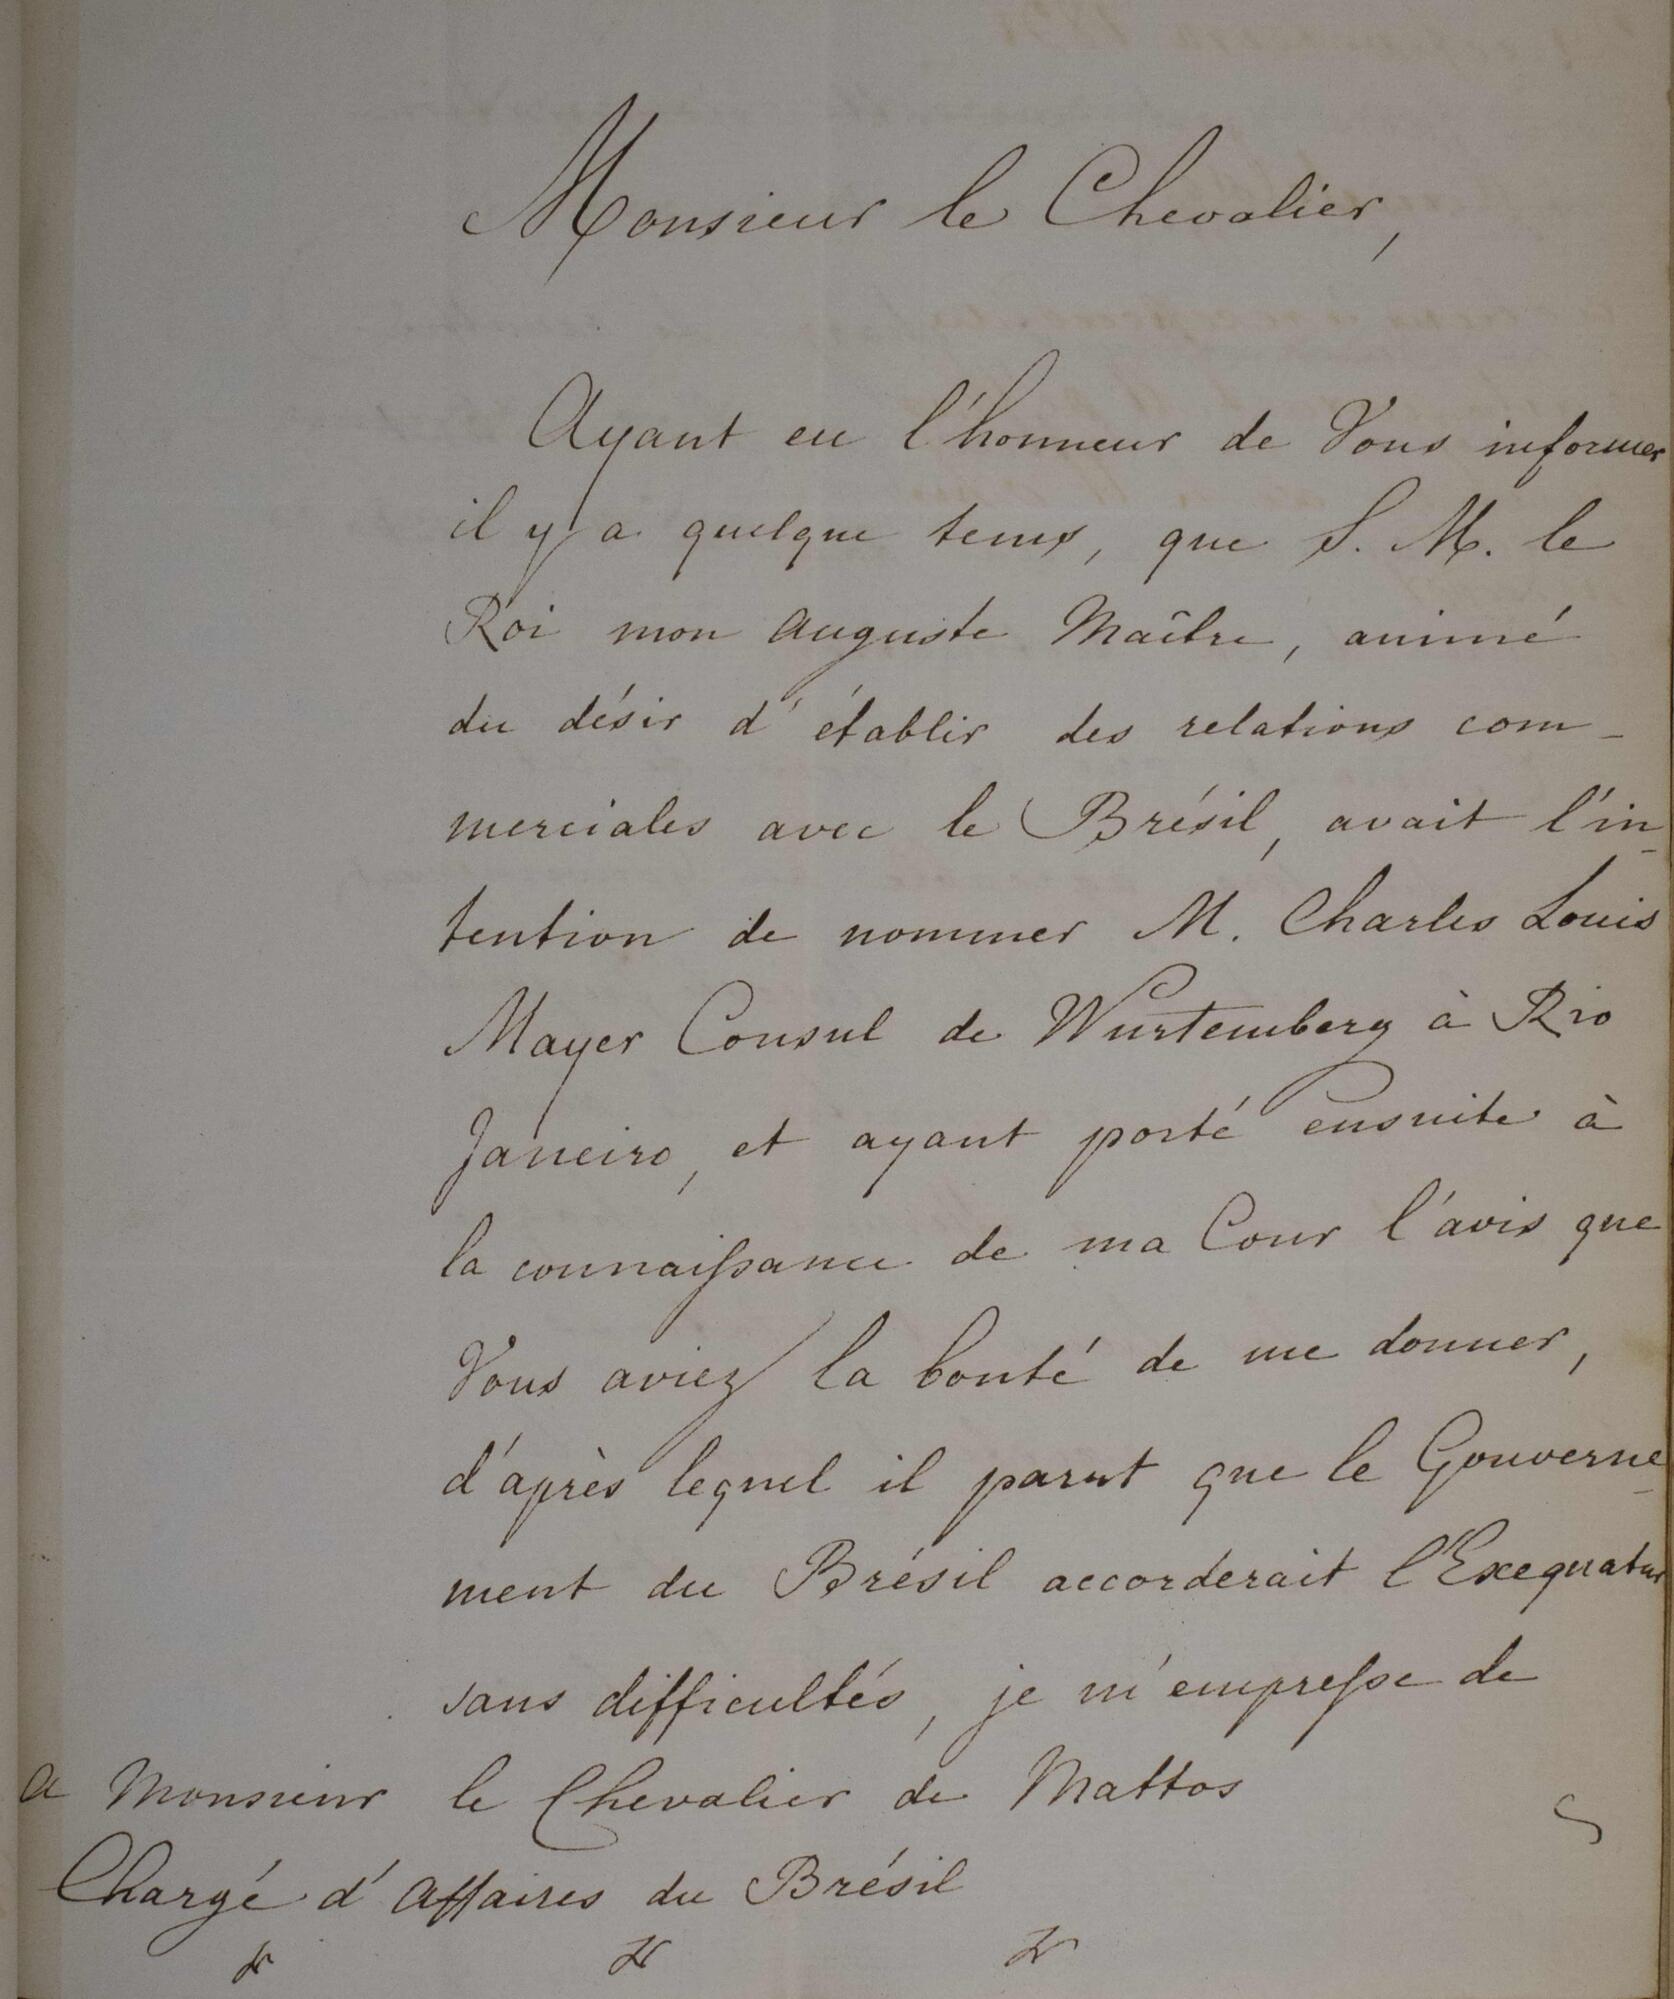 Monsieur le Chevalier,
Ayant eu l'honneur de Vous informer
il y a quelque tems, que S. M. le
Roi mon Auguste Maître, animé
du désir d'établir des relations com-
merciales avec le Brésil, avait l'in-
tention de nommer M. Charles Louis
Mayer Consul de Wurtemberg à Rio
Janeiro, et ayant porté ensuite à
la connaissance de ma Cour l'avis que
Vous aviez la bonté de me donner,
d'après lequel il parut que le Gouverne-
ment du Brésil accorderait l'Exequatur
sans difficultés, je m'empresse de
a Monsieur le Chevalier de Mattos
Chargé d'Affaires du Brésil